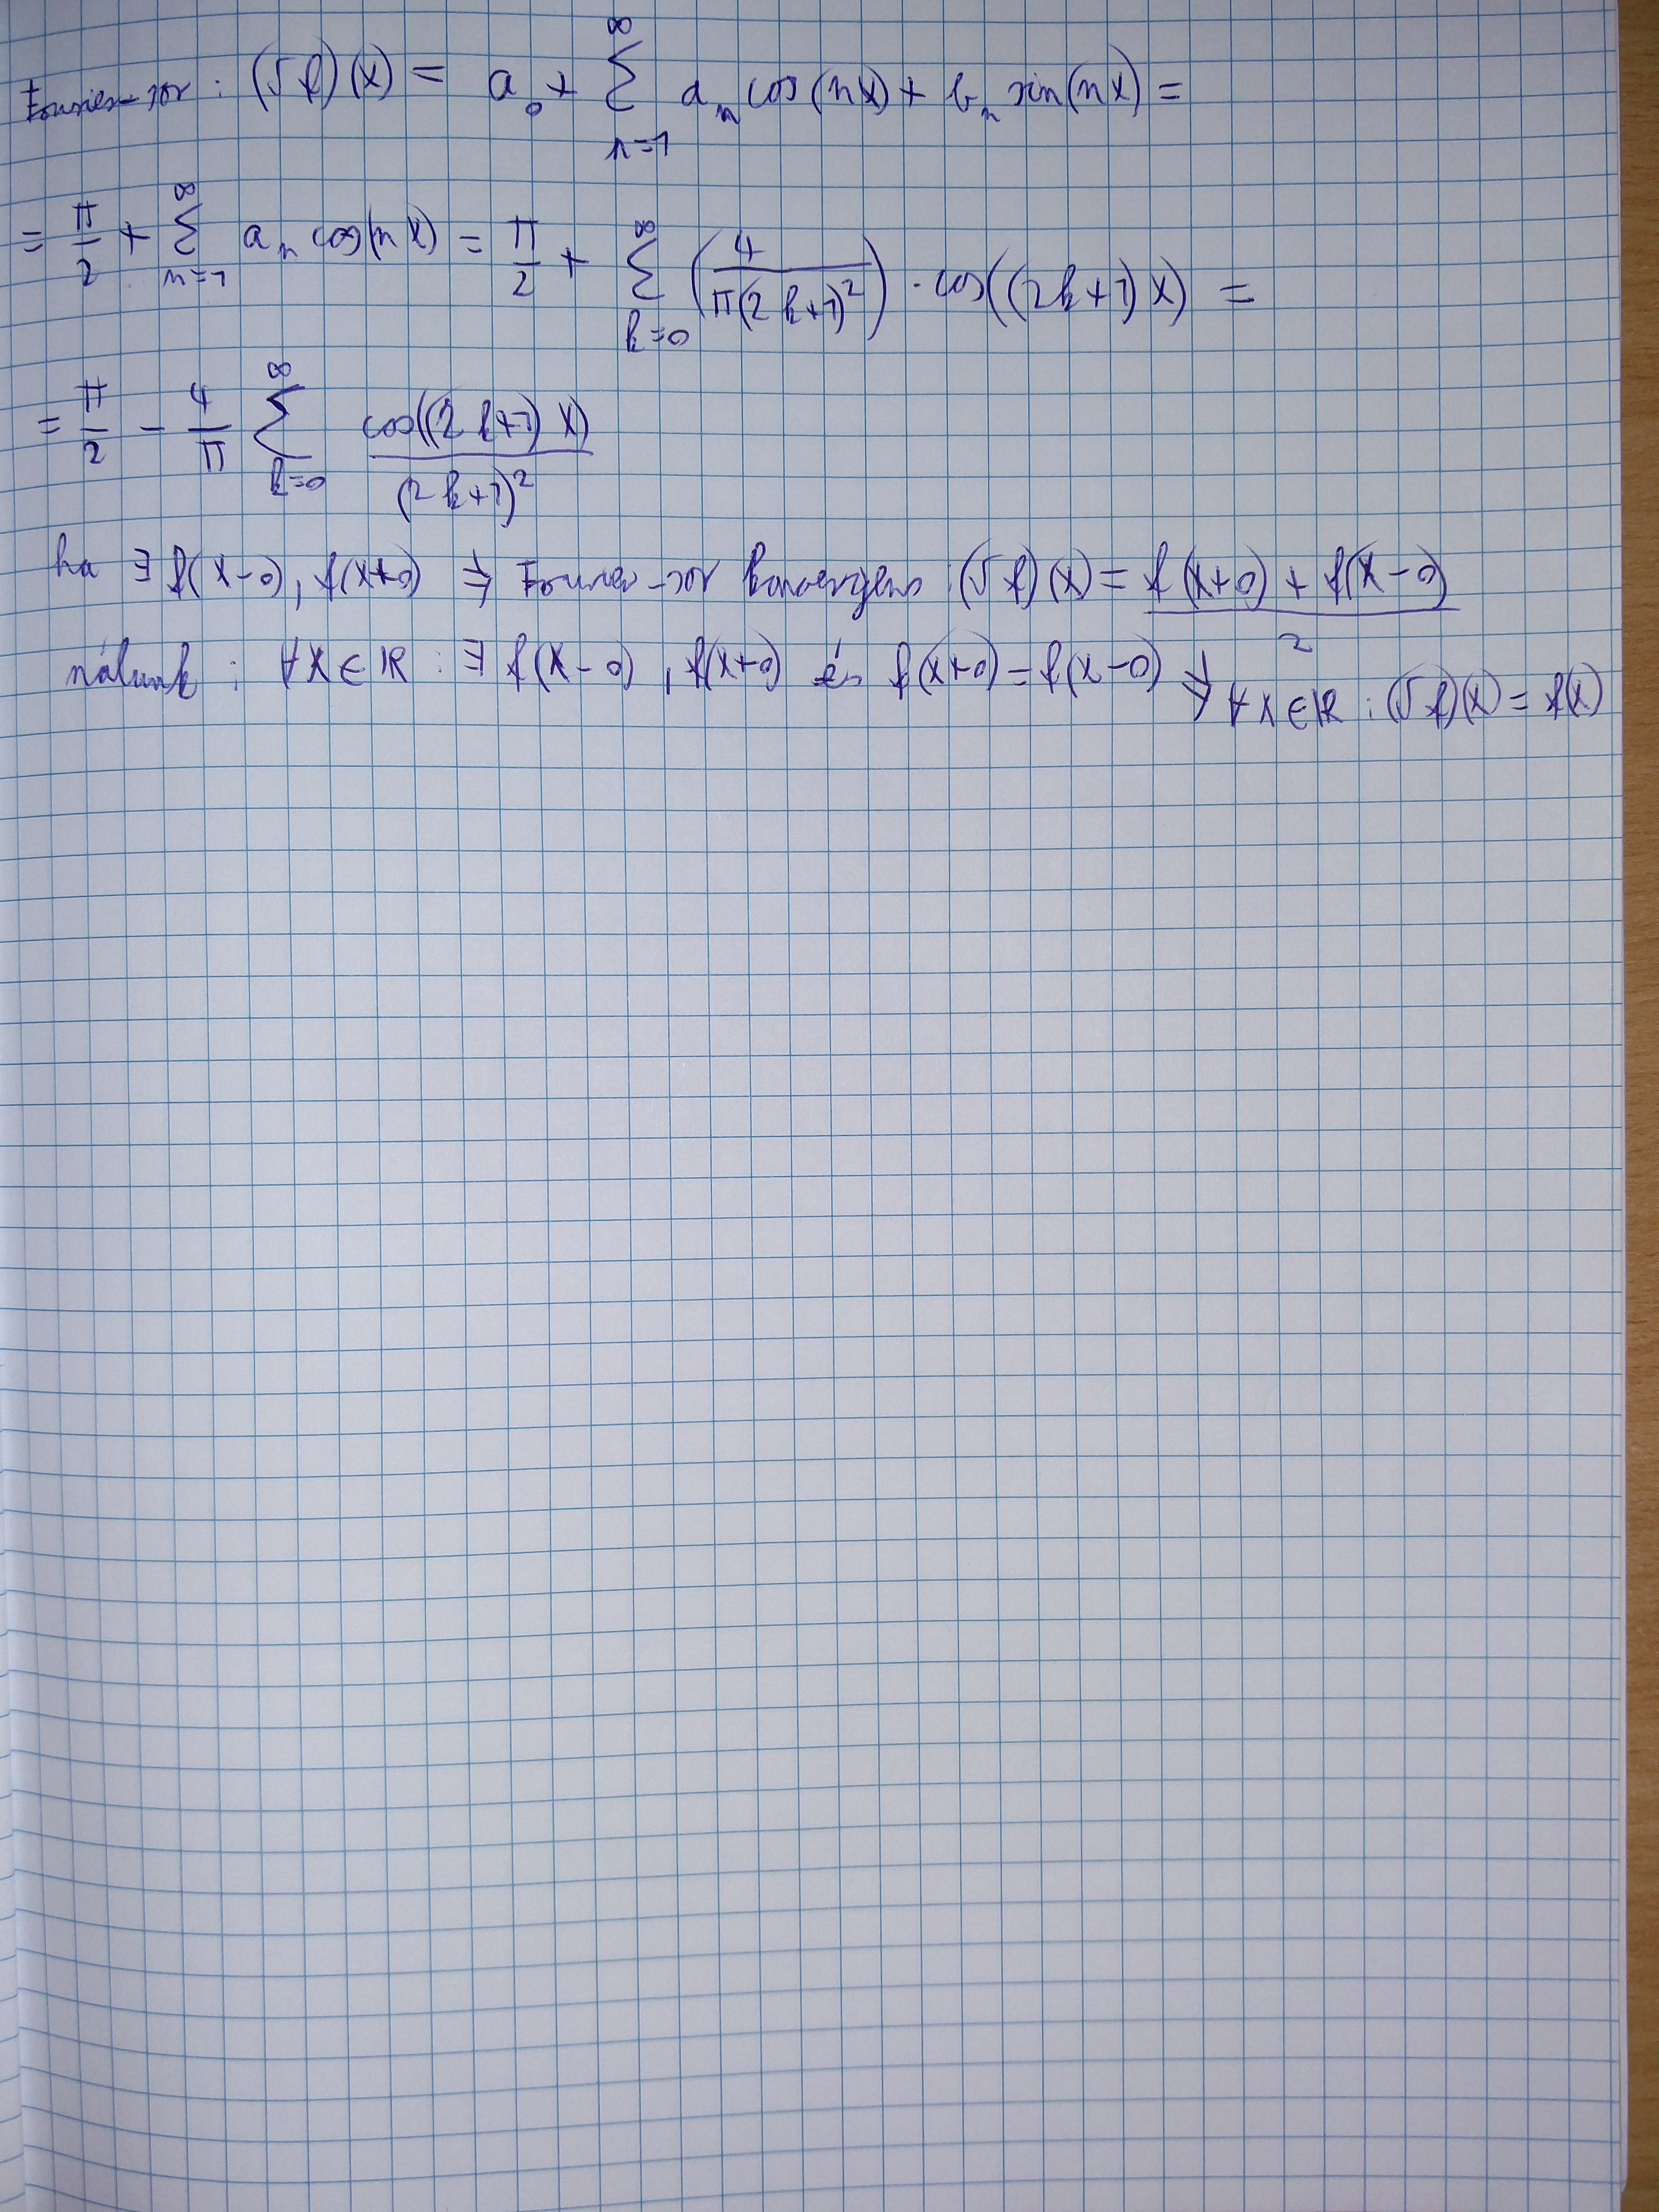 Fourier-sor: (𝓕f)(x) = a₀ + ∑_{n=1}^{∞} aₙ cos(nx) + bₙ sin(nx) =
= π/2 + ∑_{n=1}^{∞} aₙ cos(nx) = π/2 + ∑_{k=0}^{∞} (4/(π(2k+1)²)) · cos((2k+1)x) =
= π/2 - 4/π ∑_{k=0}^{∞} cos((2k+1)x)/(2k+1)²
ha ∃ f(x-0), f(x+0) ⇒ Fourier-sor konvergens: (𝓕f)(x) = (f(x+0) + f(x-0))/2
nálunk: ∀x∈ℝ: ∃ f(x-0), f(x+0) és f(x+0) = f(x-0) ⇒ ∀x∈ℝ: (𝓕f)(x) = f(x)